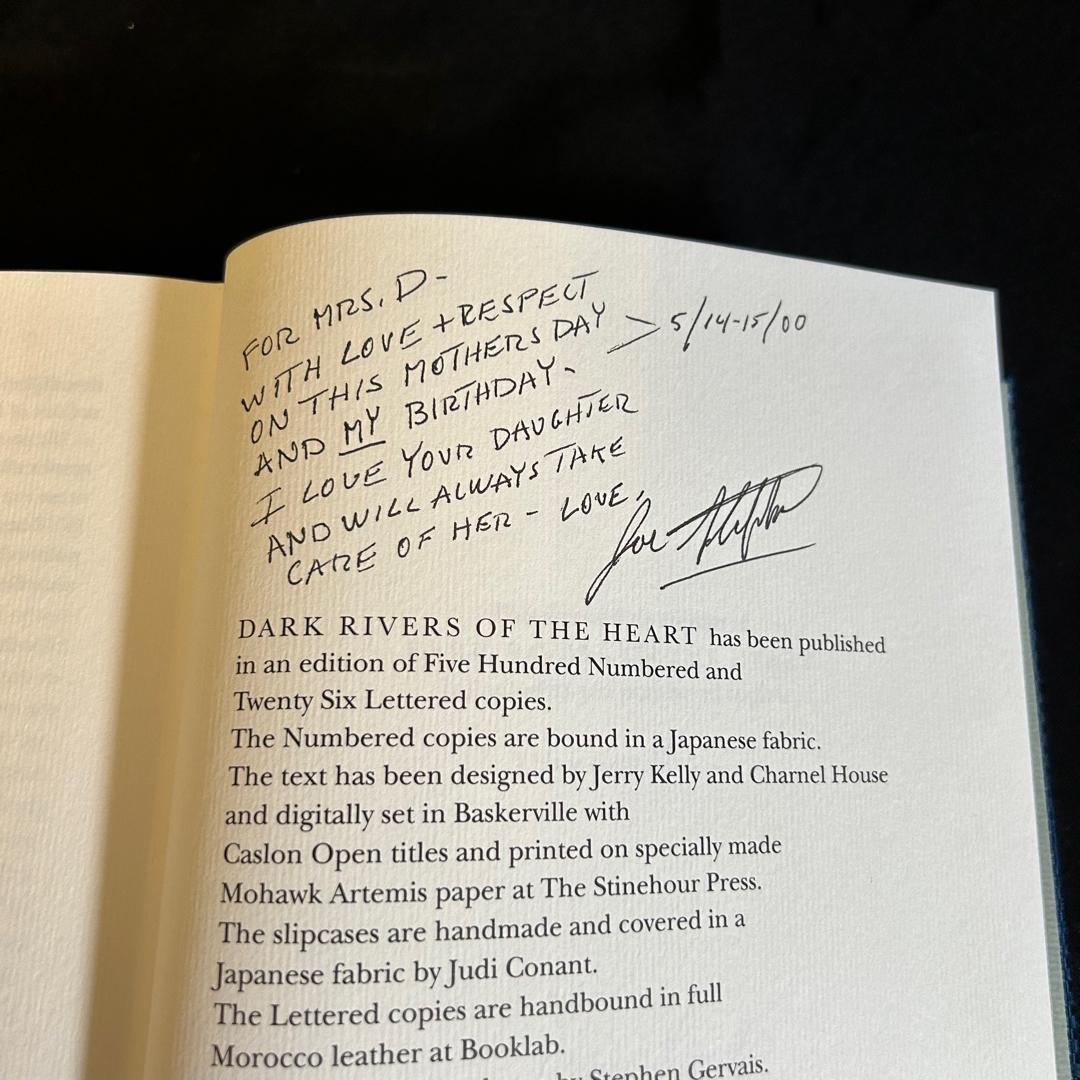 FOR MRS. D-
WITH LOVE + RESPECT
ON THIS MOTHERS DAY > 5/14-15/00
AND MY BIRTHDAY.
I LOVE YOUR DAUGHTER
AND WILL ALWAYS TAKE
CARE OF HER - LOVE,
Joe
DARK RIVERS OF THE HEART has been published
in an edition of Five Hundred Numbered and
Twenty Six Lettered copies.
The Numbered copies are bound in a Japanese fabric.
The text has been designed by Jerry Kelly and Charnel House
and digitally set in Baskerville with
Caslon Open titles and printed on specially made
Mohawk Artemis paper at The Stinehour Press.
The slipcases are handmade and covered in a
Japanese fabric by Judi Conant.
The Lettered copies are handbound in full
Morocco leather at Booklab.
by Stephen Gervais.